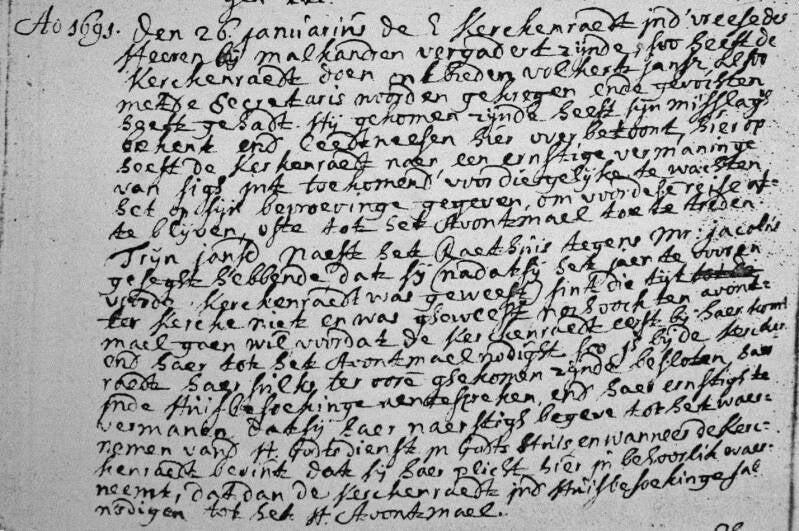 Ao 1691. Den 26 januarius de E Kerckenraedt jnd' vreese des
Heeren bij malkandren vergadert zijnde, soo heeft de
Kerckenraedt doen ontbieden volkert jansz, also
met de Secretaris woorden gekregen ende gevochten
heeft gehadt. Hij gekomen zijnde heeft sijn misslagh
bekent end leedtweesen hier over betoont, hier op
heeft de Kerckenraedt naer een ernstige vermaninge
van sigh int toekomend' voor diergelijke te wachten
het op sijn beproevinge gegeven, om voor dese reise af
te blijven, ofte tot het Avontmael toe te treden.
Trijn jansd naest het Raethuis tegens Mr. jacobus
geseght hebbende dat sij (nadat sij het jaer te vooren
voorde Kerckenraedt was geweest) sint die tijt
ter Kercke niet en was gheweest noch oock ten avont-
mael gaen wil voordat de Kerckenraedt eerst bij haer komt
end haer tot het Avontmael nodight, soo is bij de Kercken
raedt haer sulks ter oore ghekomen zijnde besloten, haer
inde Huisbesoekinge aen te spreken, end haer ernstigh te
vermanen, dat sij haer naerstigh begeve tot het waer-
nemen vand H. Godtsdienst in Godts Huis en wanneer de Kerc-
kenraedt bevint dat sij haer plicht hier in behoorlik waer-
neemt, dat dan de Kerckenraedt ind Huisbesoekinge sal
nodigen tot het H. Avontmael.